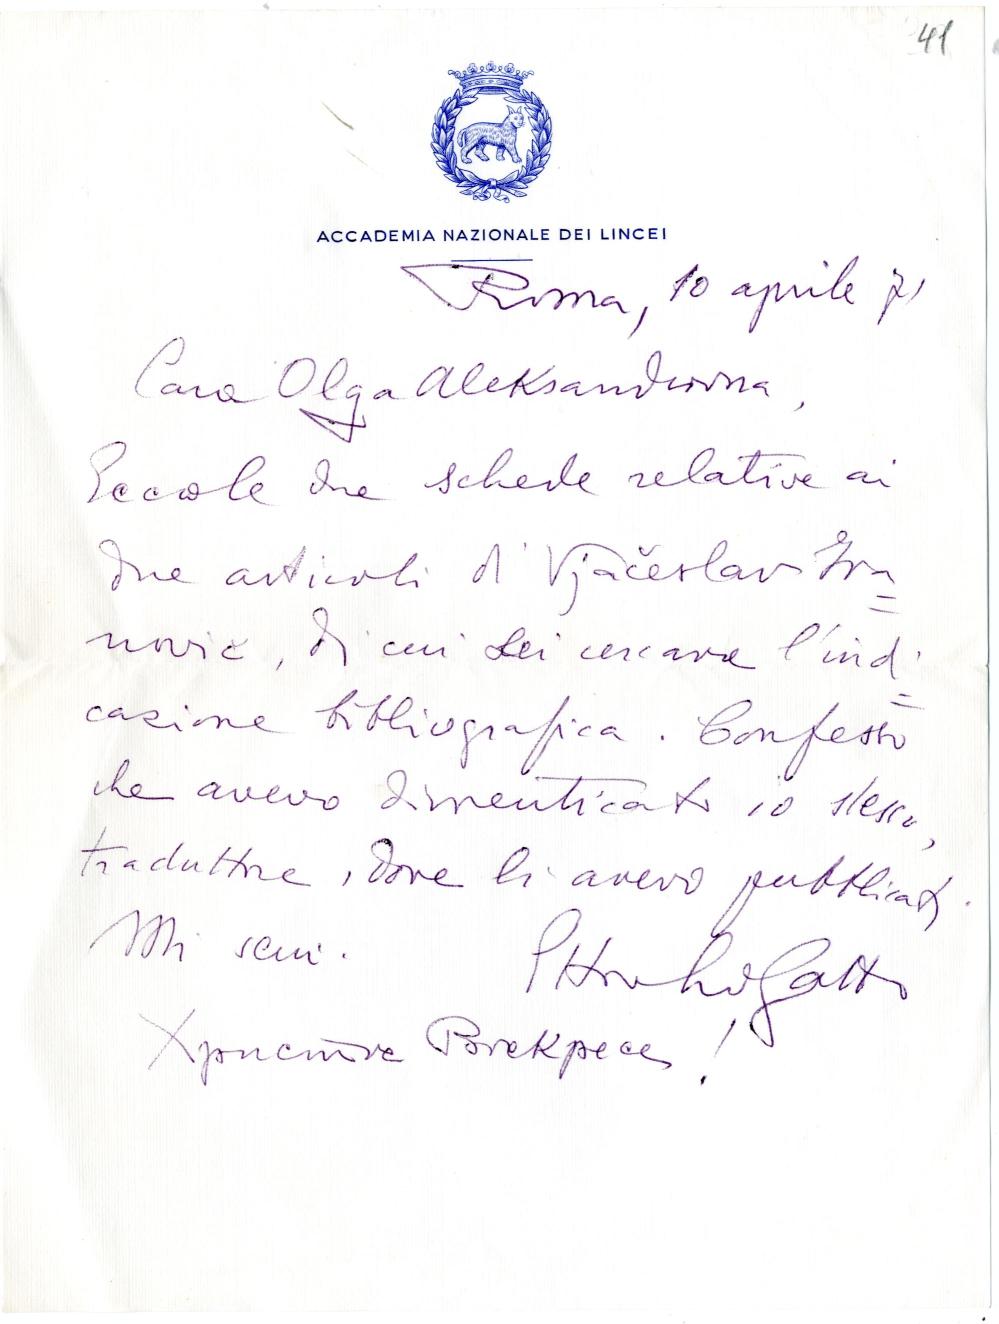 41
ACCADEMIA NAZIONALE DEI LINCEI
Roma, 10 aprile 71
Cara Olga Aleksandrovna,
Eccole due schede relative ai
due articoli di Vjačeslav Iva=
novič, di cui Lei cercava l'indi=
cazione bibliografica. Confesso
che avevo dimenticato io stesso,
traduttore, dove li avevo pubblicati.
Mi scusi.
Ettore Lo Gatto
Христос Воскресе!